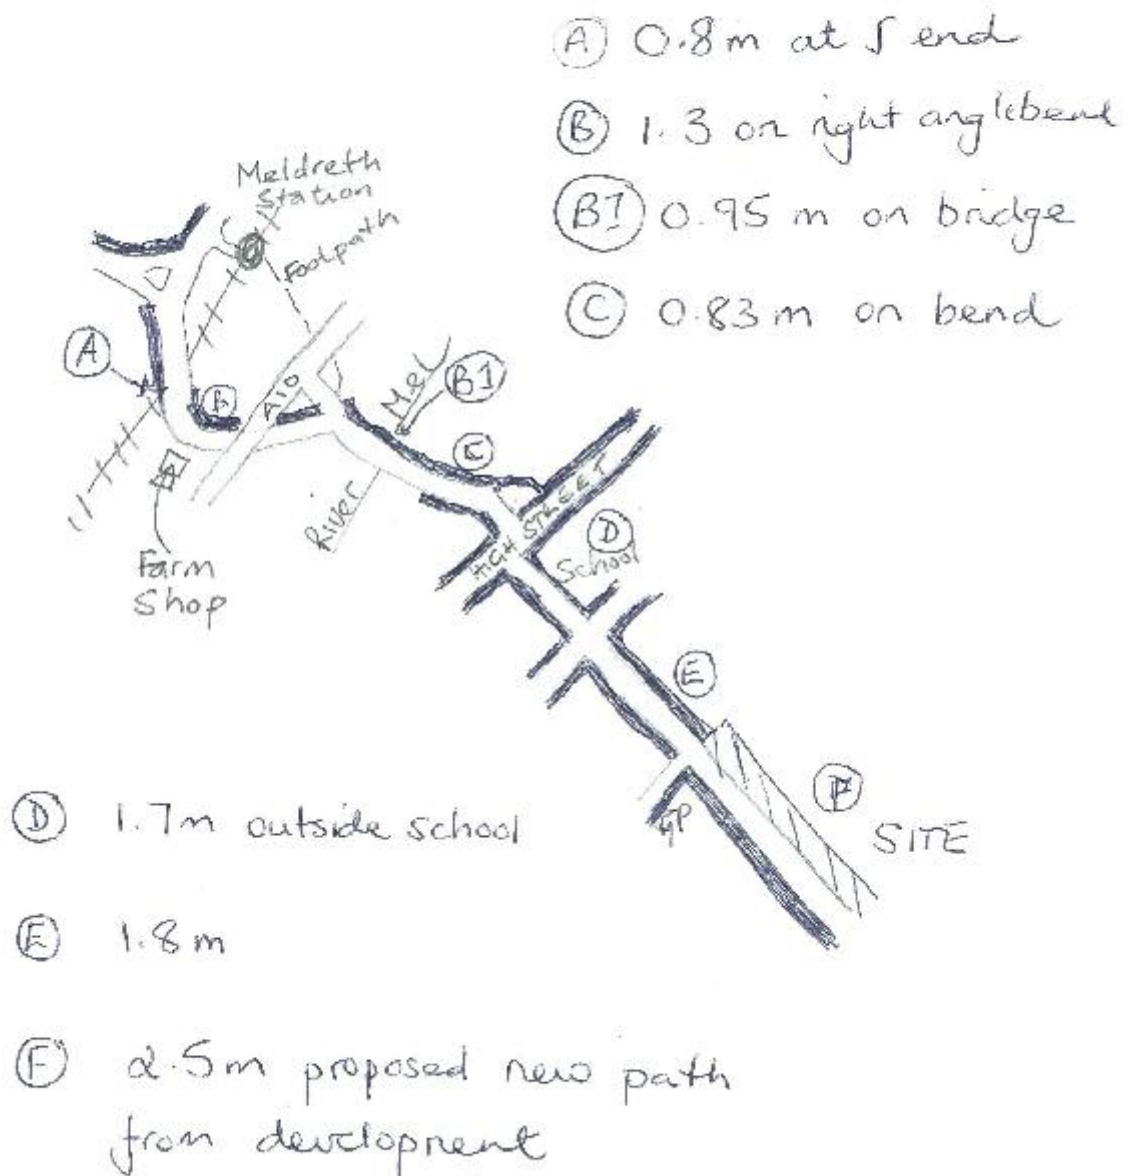 A 0.8m at S end
B 1.3 on right anglebend
B1 0.95 m on bridge
C 0.83m on bend
Meldreth
Station
Footpath
A
B
A10
Mel
B1
C
HIGH STREET
D
School
River
Farm
Shop
E
F
SITE
GP
D 1.7m outside school
E 1.8m
F 2.5m proposed new path
from development